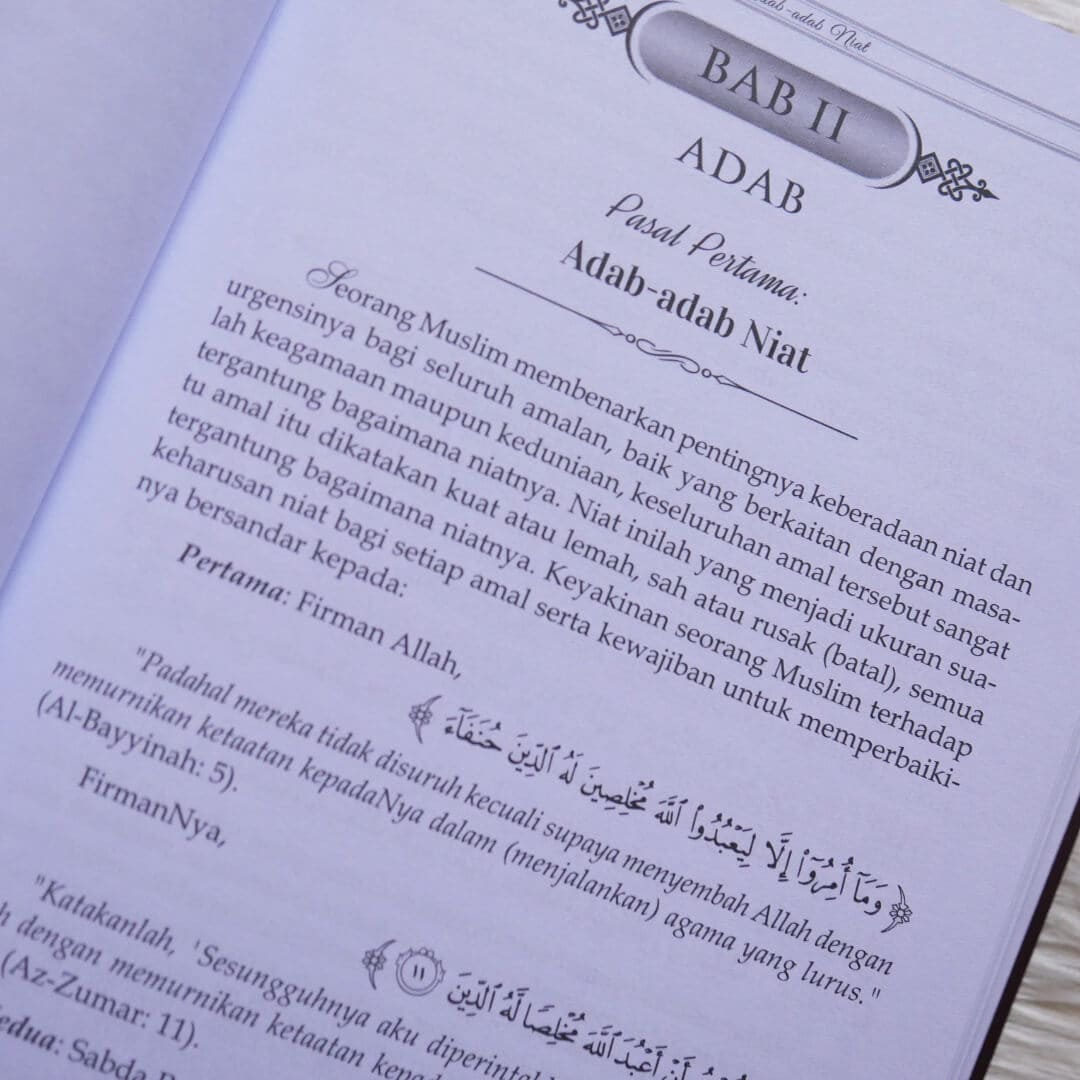 Adab-adab Niat
BAB II
ADAB
Pasal Pertama:
Adab-adab Niat
Seorang Muslim membenarkan pentingnya keberadaan niat dan
urgensinya bagi seluruh amalan, baik yang berkaitan dengan masa-
lah keagamaan maupun keduniaan, keseluruhan amal tersebut sangat
tergantung bagaimana niatnya. Niat inilah yang menjadi ukuran sua-
tu amal itu dikatakan kuat atau lemah, sah atau rusak (batal), semua
tergantung bagaimana niatnya. Keyakinan seorang Muslim terhadap
keharusan niat bagi setiap amal serta kewajiban untuk memperbaiki-
nya bersandar kepada:
Pertama: Firman Allah,
﴿ وَمَآ أُمِرُوٓا۟ إِلَّا لِيَعْبُدُوا۟ ٱللَّهَ مُخْلِصِينَ لَهُ ٱلدِّينَ حُنَفَآءَ ﴾
"Padahal mereka tidak disuruh kecuali supaya menyembah Allah dengan
memurnikan ketaatan kepadaNya dalam (menjalankan) agama yang lurus."
(Al-Bayyinah: 5).
FirmanNya,
أَنْ أَعْبُدَ ٱللَّهَ مُخْلِصًا لَّهُ ٱلدِّينَ ١١ ﴾
"Katakanlah, 'Sesungguhnya aku
dengan memurnikan ketaatan
(Az-Zumar: 11).
Sabda